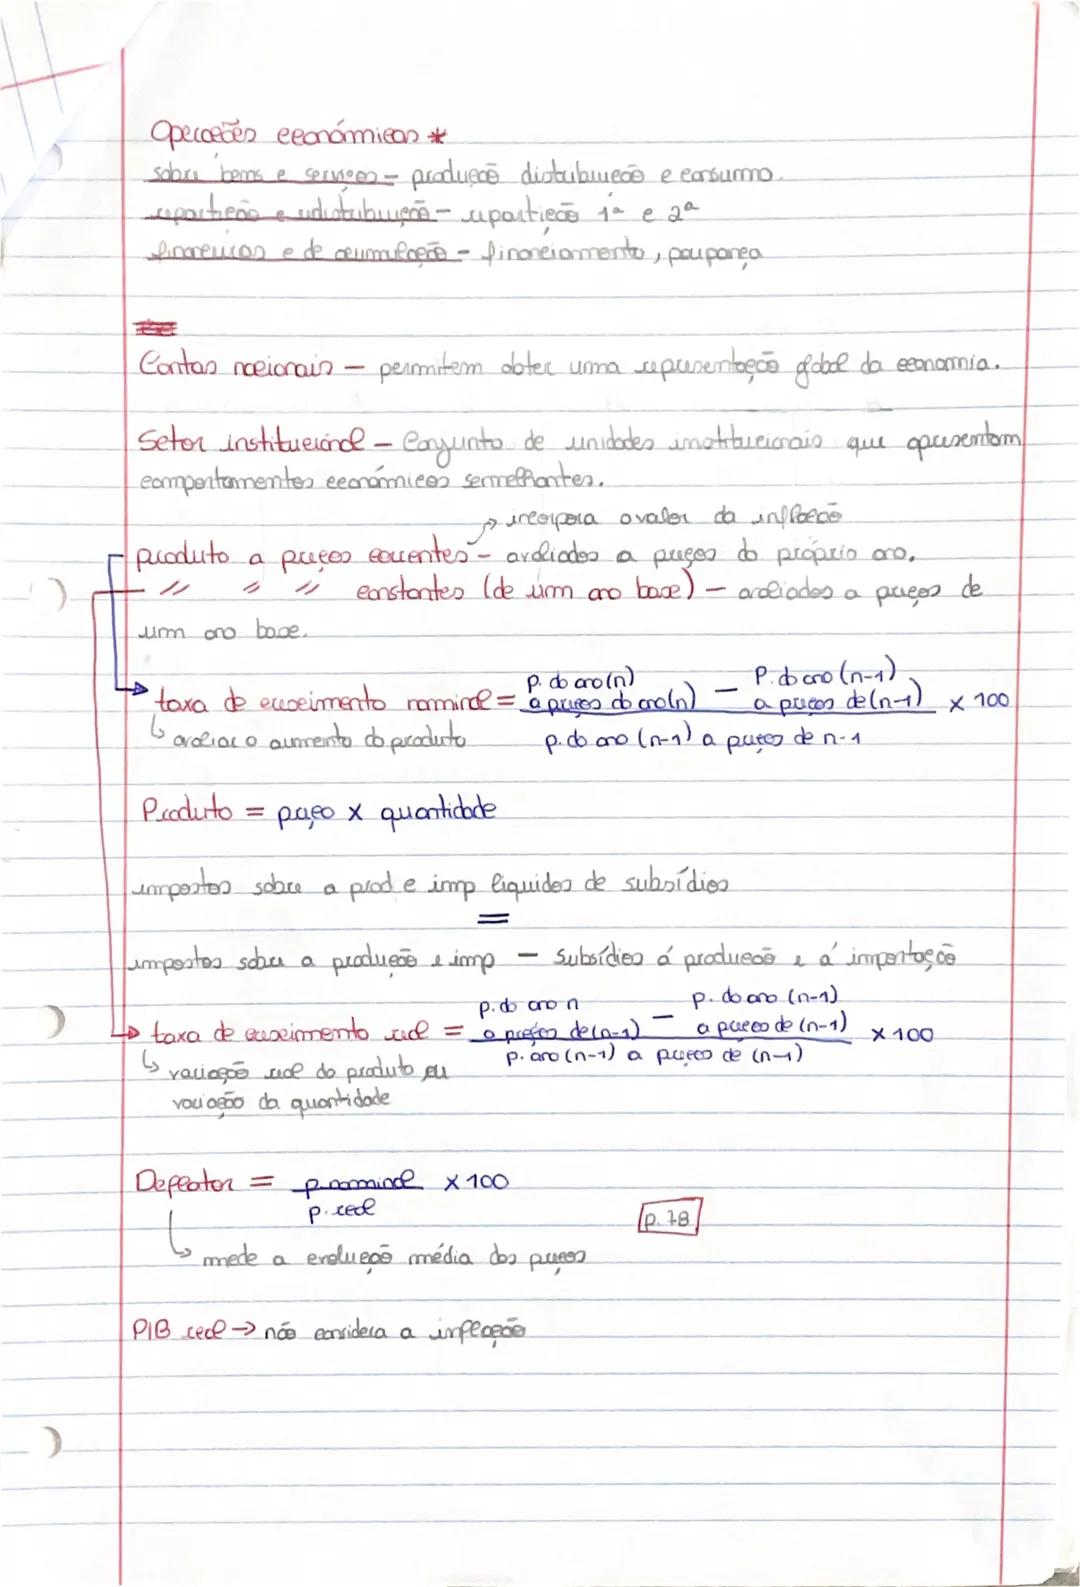 Operações económicas *
sobre bens e serviços - produção distribuição e consumo.
repartição e redistribuição - repartição 1ª e 2ª
financeiras e de acumulação - financiamento, poupança
Contas nacionais - permitem obter uma representação global da economia.
Setor institucional - Conjunto de unidades institucionais que apresentam
comportamentos económicos semelhantes.
→ incorpora o valor da inflação
produto a preços correntes - avaliados a preços do próprio ano.
" " " constantes (de um ano base) - avaliados a preços de
um ano base.
p. do ano (n) P. do ano (n-1)
taxa de crescimento nominal = a preços do ano(n) - a preços de (n-1) x 100
↳ avaliar o aumento do produto p. do ano (n-1) a preços de n-1
Produto = preço x quantidade
impostos sobre a prod e imp líquidos de subsídios
=
impostos sobre a produção e imp - Subsídios á produção e á importação
p. do ano n p. do ano (n-1)
taxa de crescimento real = a preços de (n-1) - a preços de (n-1) x 100
p. ano (n-1) a preços de (n-1)
↳ variação real do produto ou
variação da quantidade
Deflator = p. nominal x 100
p. real
p. 78
↳ mede a evolução média dos preços
PIB real → não considera a inflação